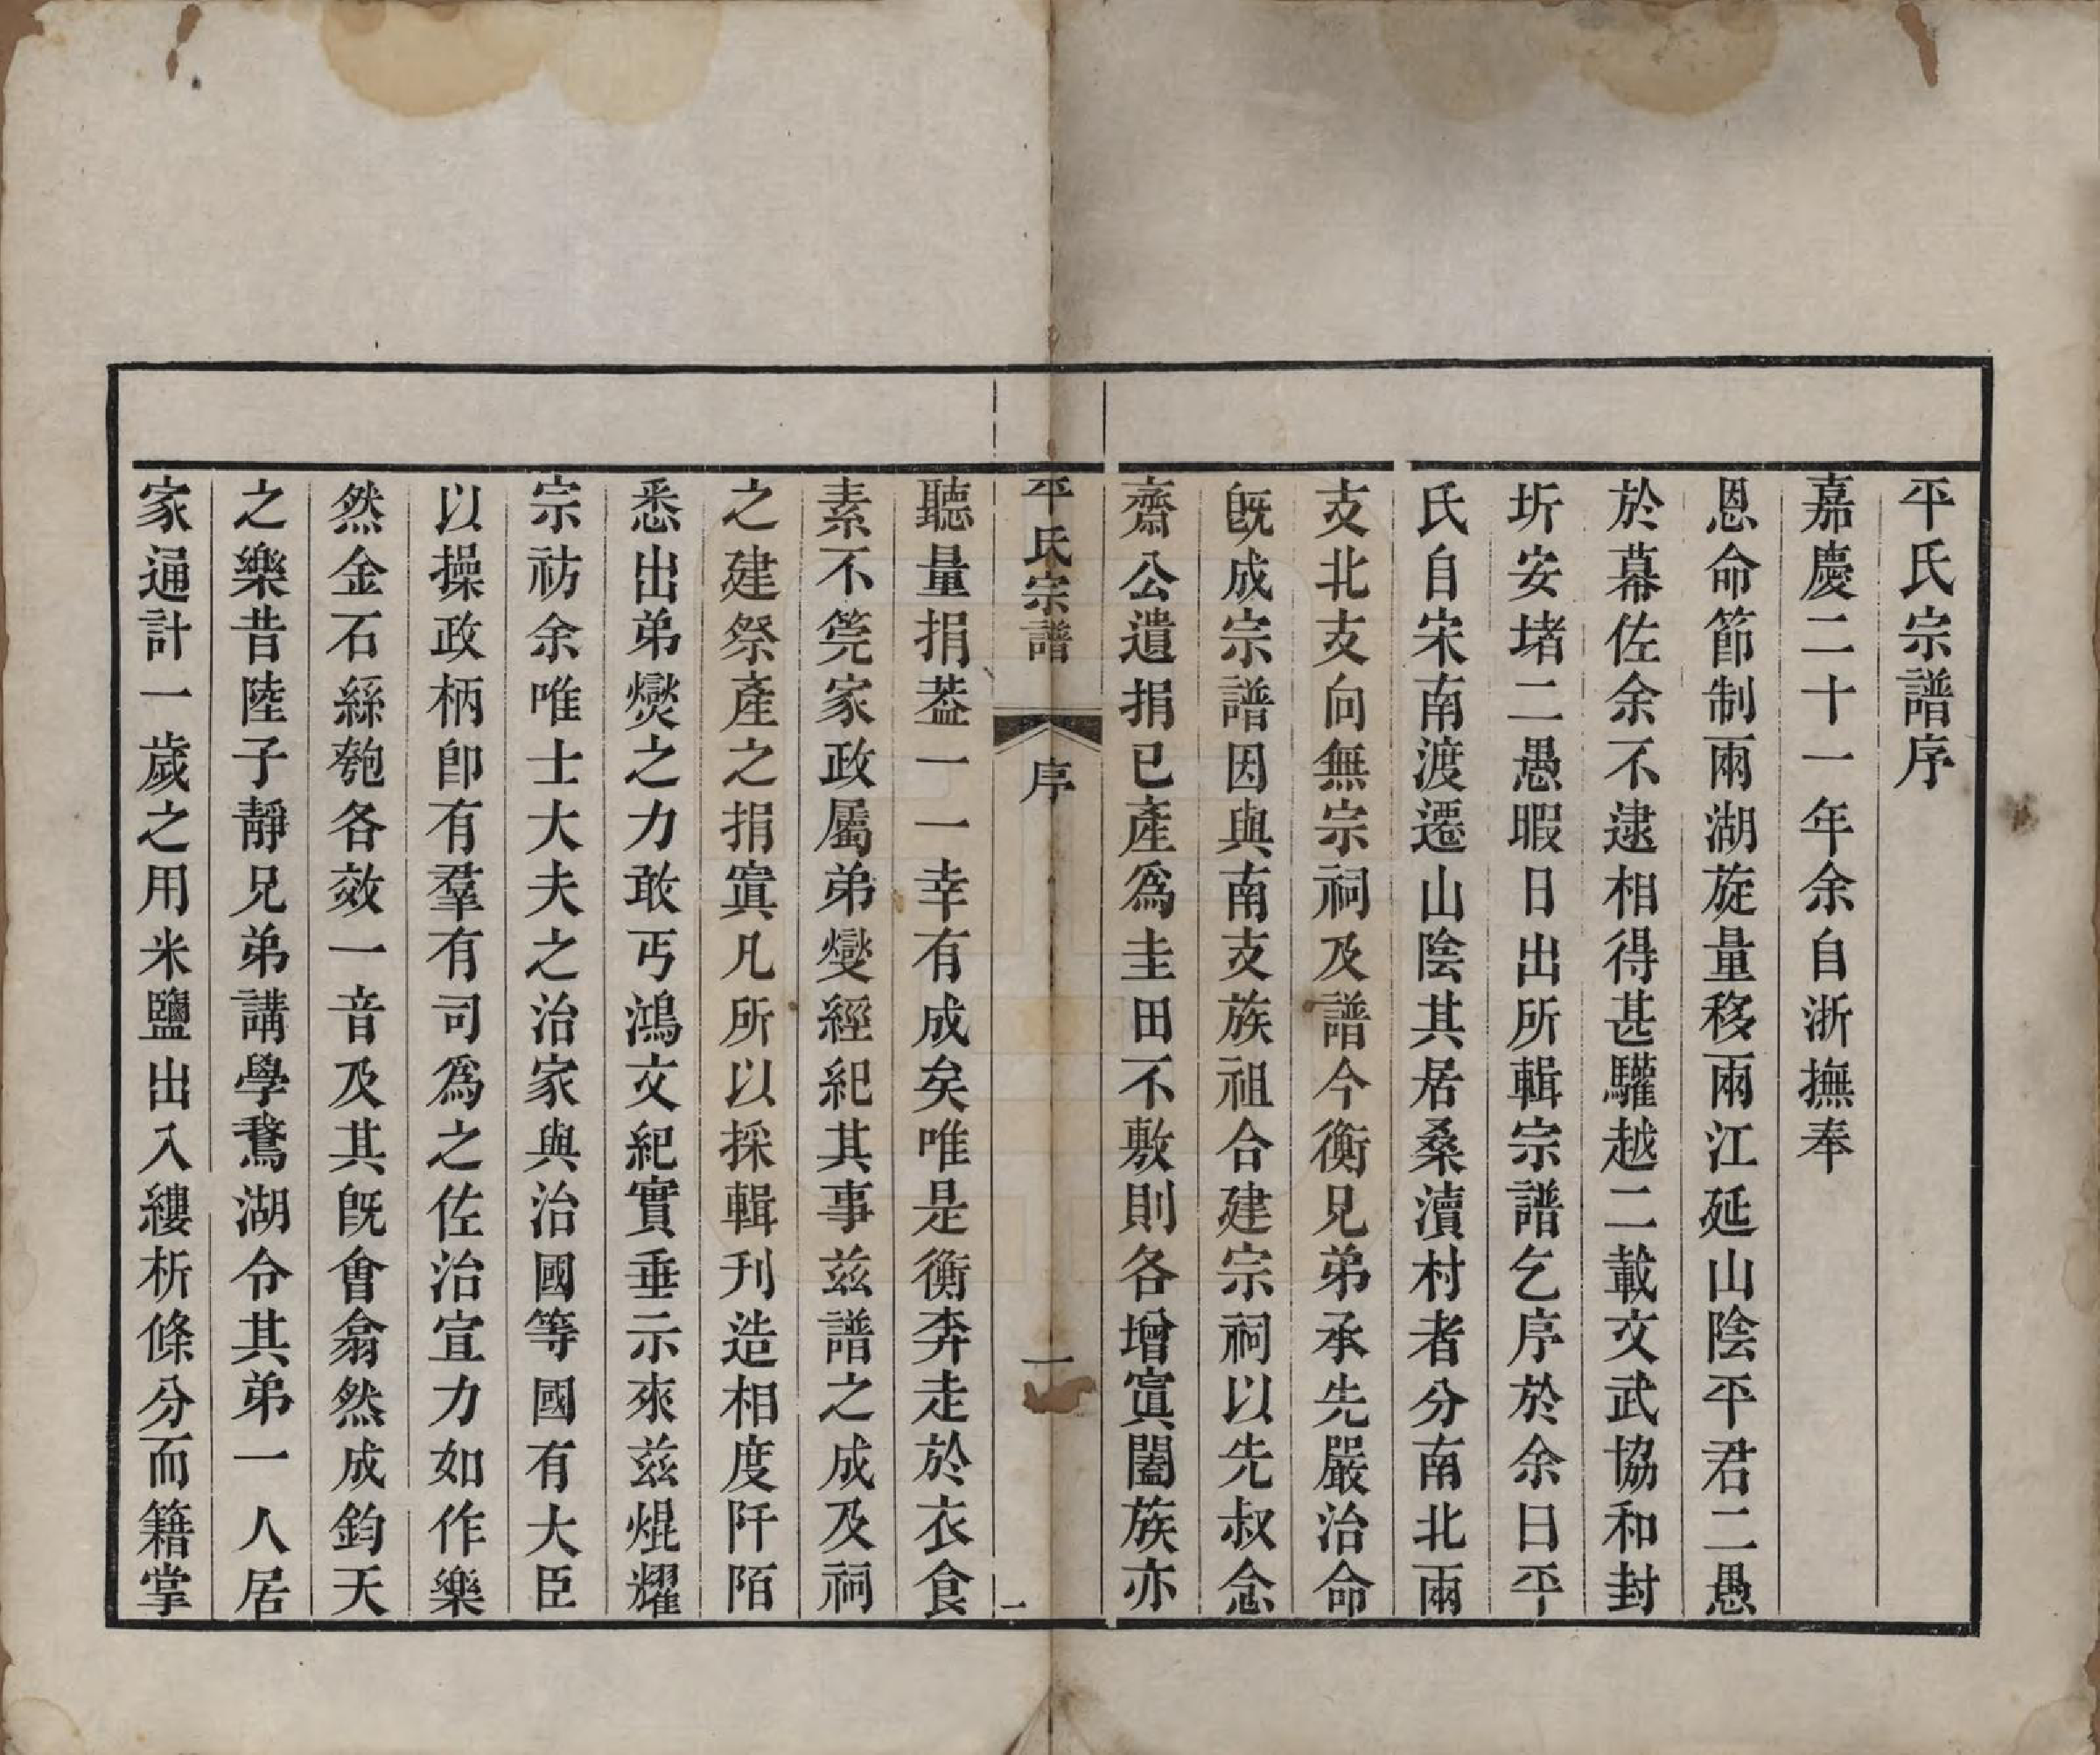 平氏宗譜序
嘉慶二十一年余自浙撫奉
恩命節制兩湖旋量移兩江延山陰平君二愚
於幕佐余不逮相得甚驩越二載文武協和封
圻安堵二愚暇日出所輯宗譜乞序於余曰平
氏自宋南渡遷山陰其居桑瀆村者分南北兩
支北支向無宗祠及譜今衡兄弟承先嚴治命
旣成宗譜因與南支族祖合建宗祠以先叔念
齋公遺捐已產爲圭田不敷則各增寘闔族亦
平氏宗譜
序
一
聽量捐葢一一幸有成矣唯是衡奔走於衣食
素不筦家政屬弟燮經紀其事茲譜之成及祠
之建祭產之捐寘凡所以採輯刊造相度阡陌
悉出弟爕之力敢丐鴻文紀實垂示來茲焜耀
宗祊余唯士大夫之治家與治國等國有大臣
以操政柄卽有羣有司爲之佐治宣力如作樂
然金石絲匏各效一音及其旣會翕然成鈞天
之樂昔陸子靜兄弟講學鵞湖令其弟一人居
家通計一歲之用米鹽出入縷析條分而籍掌